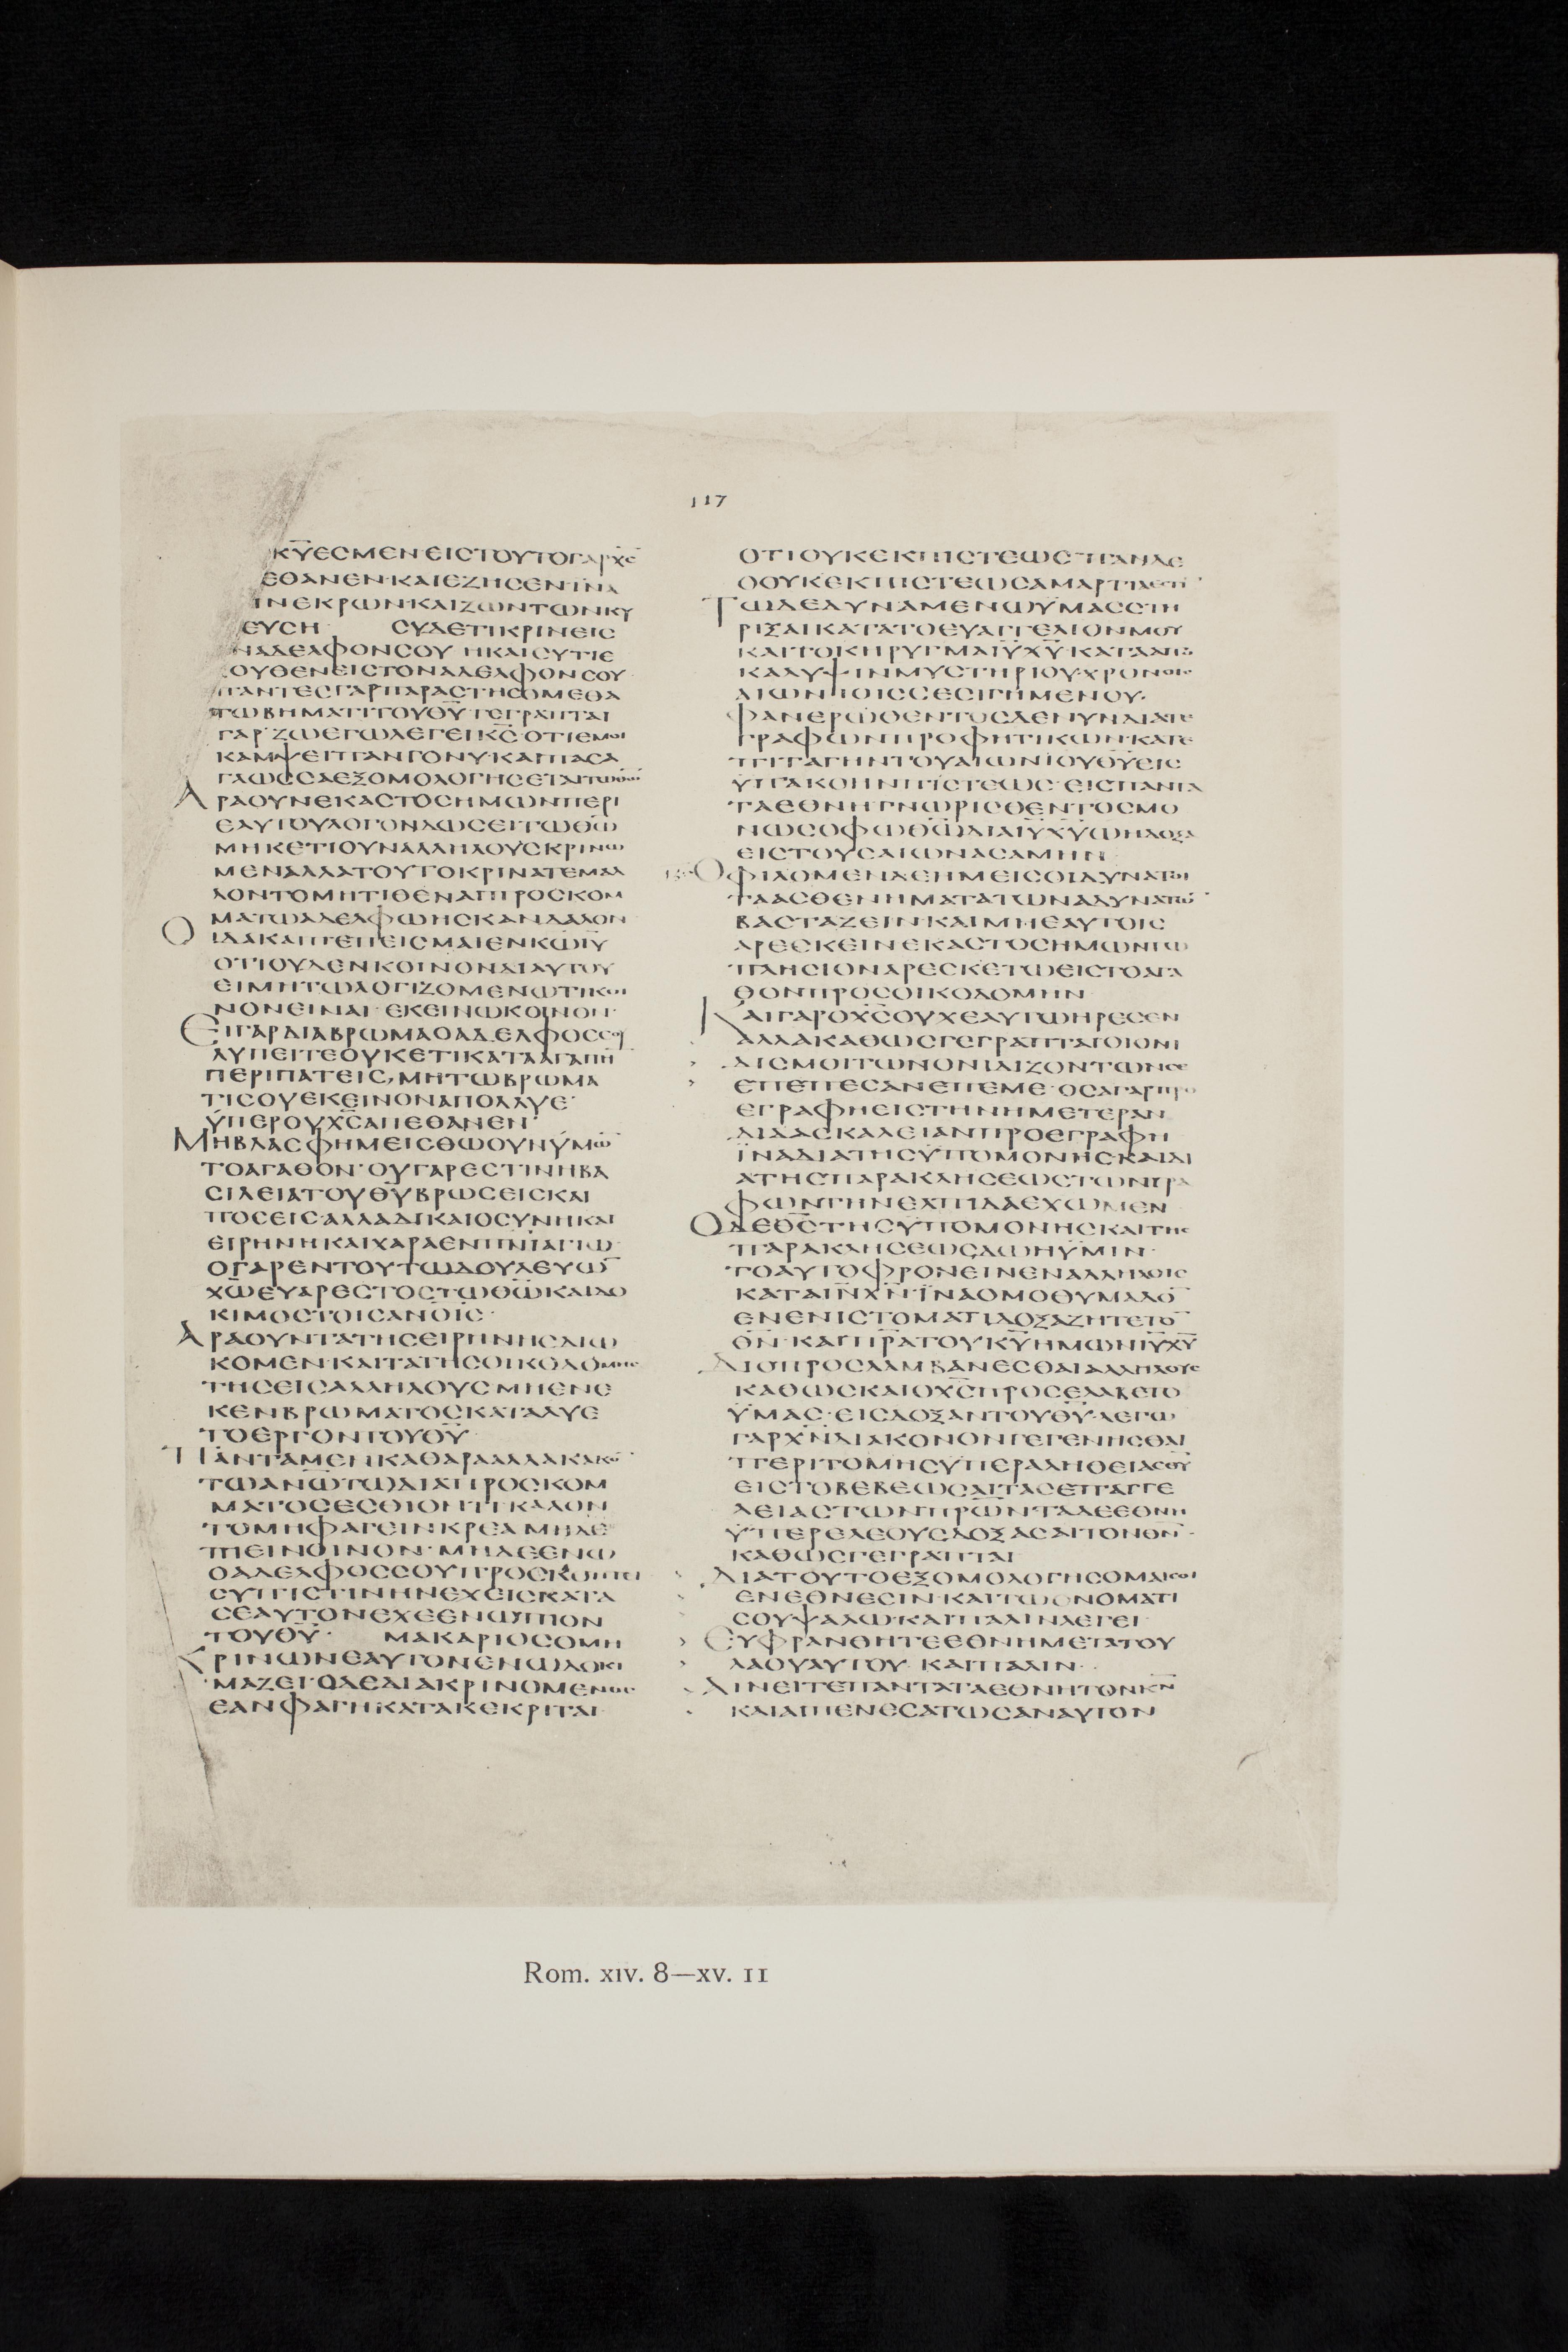 117
ΚΥ̅ΕСΜΕΝ·ΕΙСΤΟΥΤΟΓΑΡΧС̅
ΕΘΑΝΕΝ·ΚΑΙΕΖΗСΕΝ·ΪΝΑ
ΝΕΚΡΩΝ·ΚΑΙΖΩΝΤΩΝΚΥ
ΕΥСΗ· СΥΔΕΤΙΚΡΙΝΕΙС
ΑΔΕΛΦΟΝСΟΥ· ΗΚΑΙСΥΤΙΕ
ΟΥΘΕΝΕΙСΤΟΝΑΔΕΛΦΟΝСΟΥ·
ΠΑΝΤΕСΓΑΡΠΑΡΑСΤΗСΟΜΕΘΑ
ΤΩΒΗΜΑΤΙΤΟΥΘΥ̅·ΓΕΓΡΑΠΤΑΙ
ΓΑΡ·ΖΩΕΓΩΛΕΓΕΙΚС̅·ΟΤΙΕΜΟΙ
ΚΑΜΨΕΙΠΑΝΓΟΝΥ·ΚΑΙΠΑСΑ
ΓΛΩССΑΕΞΟΜΟΛΟΓΗСΕΤΑΙΤΩΘΩ̅
ΑΡΑΟΥΝΕΚΑСΤΟСΗΜΩΝΠΕΡΙ
ΕΑΥΤΟΥΛΟΓΟΝΔΩСΕΙΤΩΘΩ̅
ΜΗΚΕΤΙΟΥΝΑΛΛΗΛΟΥСΚΡΙΝΩ
ΜΕΝΑΛΛΑΤΟΥΤΟΚΡΙΝΑΤΕΜΑΛ
ΛΟΝΤΟΜΗΤΙΘΕΝΑΙΠΡΟСΚΟΜ
ΜΑΤΩΑΔΕΛΦΩΗСΚΑΝΔΑΛΟΝ
ΟΙΔΑΚΑΙΠΕΠΕΙСΜΑΙΕΝΚΩ̅ΙΥ̅
ΟΤΙΟΥΔΕΝΚΟΙΝΟΝΔΙΑΥΤΟΥ
ΕΙΜΗΤΩΛΟΓΙΖΟΜΕΝΩΤΙΚΟΙ
ΝΟΝΕΙΝΑΙ·ΕΚΕΙΝΩΚΟΙΝΟΝ·
ΕΙΓΑΡΔΙΑΒΡΩΜΑΟΑΔΕΛΦΟССΟΥ
ΛΥΠΕΙΤΕΟΥΚΕΤΙΚΑΤΑΑΓΑΠΗ
ΠΕΡΙΠΑΤΕΙС,ΜΗΤΩΒΡΩΜΑ
ΤΙСΟΥΕΚΕΙΝΟΝΑΠΟΛΛΥΕ·
ΫΠΕΡΟΥΧС̅ΑΠΕΘΑΝΕΝ·
ΜΗΒΛΑСΦΗΜΕΙСΘΩΟΥΝΫΜΩ̅
ΤΟΑΓΑΘΟΝ·ΟΥΓΑΡΕСΤΙΝΗΒΑ
СΙΛΕΙΑΤΟΥΘΥ̅ΒΡΩСΕΙСΚΑΙ
ΠΟСΕΙС·ΑΛΛΑΔΙΚΑΙΟСΥΝΗΚΑΙ
ΕΙΡΗΝΗΚΑΙΧΑΡΑΕΝΠΝΙ̅ΑΓΙΩ·
ΟΓΑΡΕΝΤΟΥΤΩΔΟΥΛΕΥΩ̅
ΧΩ̅ΕΥΑΡΕСΤΟСΤΩΘΩ̅ΚΑΙΔΟ
ΚΙΜΟСΤΟΙСΑΝΟΙС̅·
ΑΡΑΟΥΝΤΑΤΗСΕΙΡΗΝΗСΔΙΩ
ΚΟΜΕΝ·ΚΑΙΤΑΤΗСΟΙΚΟΔΟΜΗС
ΤΗСΕΙСΑΛΛΗΛΟΥСΜΗΕΝΕ
ΚΕΝΒΡΩΜΑΤΟСΚΑΤΑΛΥΕ
ΤΟΕΡΓΟΝΤΟΥΘΥ̅·
ΠΑΝΤΑΜΕΝΚΑΘΑΡΑΑΛΛΑΚΑΚΟ̅
ΤΩΑΝΩ̅ΤΩΔΙΑΠΡΟСΚΟΜ
ΜΑΤΟСΕСΘΙΟΝΤΙ·ΚΑΛΟΝ
ΤΟΜΗΦΑΓΕΙΝΚΡΕΑ·ΜΗΔΕ
ΠΕΙΝΟΙΝΟΝ·ΜΗΔΕΕΝΩ
ΟΑΔΕΛΦΟССΟΥΠΡΟСΚΟΠΤΕΙ
СΥΠΙСΤΙΝΗΝΕΧΕΙСΚΑΤΑ
СΕΑΥΤΟΝΕΧΕΕΝΩΠΙΟΝ
ΤΟΥΘΥ̅· ΜΑΚΑΡΙΟСΟΜΗ
ΚΡΙΝΩΝΕΑΥΤΟΝΕΝΩΔΟΚΙ
ΜΑΖΕΙ·ΟΔΕΔΙΑΚΡΙΝΟΜΕΝΟС
ΕΑΝΦΑΓΗΚΑΤΑΚΕΚΡΙΤΑΙ·
ΟΤΙΟΥΚΕΚΠΙСΤΕΩС·ΠΑΝΔΕ
ΟΟΥΚΕΚΠΙСΤΕΩСΑΜΑΡΤΙΑΕСΤΙ
ΤΩΔΕΔΥΝΑΜΕΝΩΫΜΑССΤΗ
ΡΙΞΑΙΚΑΤΑΤΟΕΥΑΓΓΕΛΙΟΝΜΟΥ
ΚΑΙΤΟΚΗΡΥΓΜΑΙΥ̅ΧΥ̅·ΚΑΤΑΑΠΟ
ΚΑΛΥΨΙΝΜΥСΤΗΡΙΟΥ·ΧΡΟΝΟΙС
ΑΙΩΝΙΟΙССΕСΙΓΗΜΕΝΟΥ·
ΦΑΝΕΡΩΘΕΝΤΟСΔΕΝΥΝΔΙΑΤΕ
ΓΡΑΦΩΝΠΡΟΦΗΤΙΚΩΝ·ΚΑΤΕ
ΠΙΤΑΓΗΝΤΟΥΑΙΩΝΙΟΥΘΥ̅ΕΙС
ΫΠΑΚΟΗΝΠΙСΤΕΩС·ΕΙСΠΑΝΤΑ
ΤΑΕΘΝΗΓΝΩΡΙСΘΕΝΤΟСΜΟ
ΝΩСΟΦΩΘΩ̅ΔΙΑΙΥ̅ΧΥ̅ΩΗΔΟΞΑ
ΕΙСΤΟΥСΑΙΩΝΑСΑΜΗΝ·
ΟΦΙΛΟΜΕΝΔΕΗΜΕΙСΟΙΔΥΝΑΤΟΙ
ΤΑΑСΘΕΝΗΜΑΤΑΤΩΝΑΔΥΝΑΤΩ̅
ΒΑСΤΑΖΕΙΝ·ΚΑΙΜΗΕΑΥΤΟΙС
ΑΡΕСΚΕΙΝΕΚΑСΤΟСΗΜΩΝΤΩ
ΠΛΗСΙΟΝΑΡΕСΚΕΤΩΕΙСΤΟΑΓΑ
ΘΟΝΠΡΟСΟΙΚΟΔΟΜΗΝ·
ΚΑΙΓΑΡΟΧС̅ΟΥΧΕΑΥΤΩΗΡΕСΕΝ
ΑΛΛΑΚΑΘΩСΓΕΓΡΑΠΤΑΙΟΙΟΝΙ
ΔΙСΜΟΙΤΩΝΟΝΙΔΙΖΟΝΤΩΝСΕ
ΕΠΕΠΕСΑΝΕΠΕΜΕ·ΟСΑΓΑΡΠΡΟ
ΕΓΡΑΦΗΕΙСΤΗΝΗΜΕΤΕΡΑΝ
ΔΙΔΑСΚΑΛΕΙΑΝΠΡΟΕΓΡΑΦΗ
ΪΝΑΔΙΑΤΗСΫΠΟΜΟΝΗСΚΑΙΔΙ
ΑΤΗСΠΑΡΑΚΛΗСΕΩСΤΩΝΓΡΑ
ΦΩΝΤΗΝΕΛΠΙΔΑΕΧΩΜΕΝ
ΟΔΕΘС̅ΤΗСΫΠΟΜΟΝΗСΚΑΙΤΗС
ΠΑΡΑΚΛΗСΕΩСΔΩΗΫΜΙΝ·
ΤΟΑΥΤΟΦΡΟΝΕΙΝΕΝΑΛΛΗΛΟΙС
ΚΑΤΑΙΝ̅ΧΝ̅·ΪΝΑΟΜΟΘΥΜΑΔΟ̅
ΕΝΕΝΙСΤΟΜΑΤΙΔΟΞΑΖΗΤΕΤΟ̅
ΘΝ̅·ΚΑΙΠΡΑ̅ΤΟΥΚΥ̅ΗΜΩΝΙΥ̅ΧΥ̅
ΔΙΟΠΡΟСΛΑΜΒΑΝΕСΘΑΙΑΛΛΗΛΟΥС
ΚΑΘΩСΚΑΙΟΧС̅ΠΡΟСΕΛΑΒΕΤΟ
ΫΜΑС·ΕΙСΔΟΞΑΝΤΟΥΘΥ̅·ΛΕΓΩ
ΓΑΡΧΝ̅ΔΙΑΚΟΝΟΝΓΕΓΕΝΗСΘΑΙ
ΠΕΡΙΤΟΜΗСΫΠΕΡΑΛΗΘΕΙΑСΘΥ̅
ΕΙСΤΟΒΕΒΕΩСΑΙΤΑСΕΠΑΓΓΕ
ΛΕΙΑСΤΩΝΠΡΩ̅Ν·ΤΑΔΕΕΘΝΗ
ΫΠΕΡΕΛΕΟΥСΔΟΞΑСΑΙΤΟΝΘΝ̅·
ΚΑΘΩСΓΕΓΡΑΠΤΑΙ
ΔΙΑΤΟΥΤΟΕΞΟΜΟΛΟΓΗСΟΜΑΙСΟΙ
ΕΝΕΘΝΕСΙΝ·ΚΑΙΤΩΟΝΟΜΑΤΙ
СΟΥΨΑΛΩ·ΚΑΙΠΑΛΙΝΛΕΓΕΙ·
ΕΥΦΡΑΝΘΗΤΕΕΘΝΗΜΕΤΑΤΟΥ
ΛΑΟΥΑΥΤΟΥ·ΚΑΙΠΑΛΙΝ·
ΑΙΝΕΙΤΕΠΑΝΤΑΤΑΕΘΝΗΤΟΝΚΝ̅
ΚΑΙΑΙΠΕΝΕСΑΤΩСΑΝΑΥΤΟΝ
Rom. xiv. 8—xv. 11